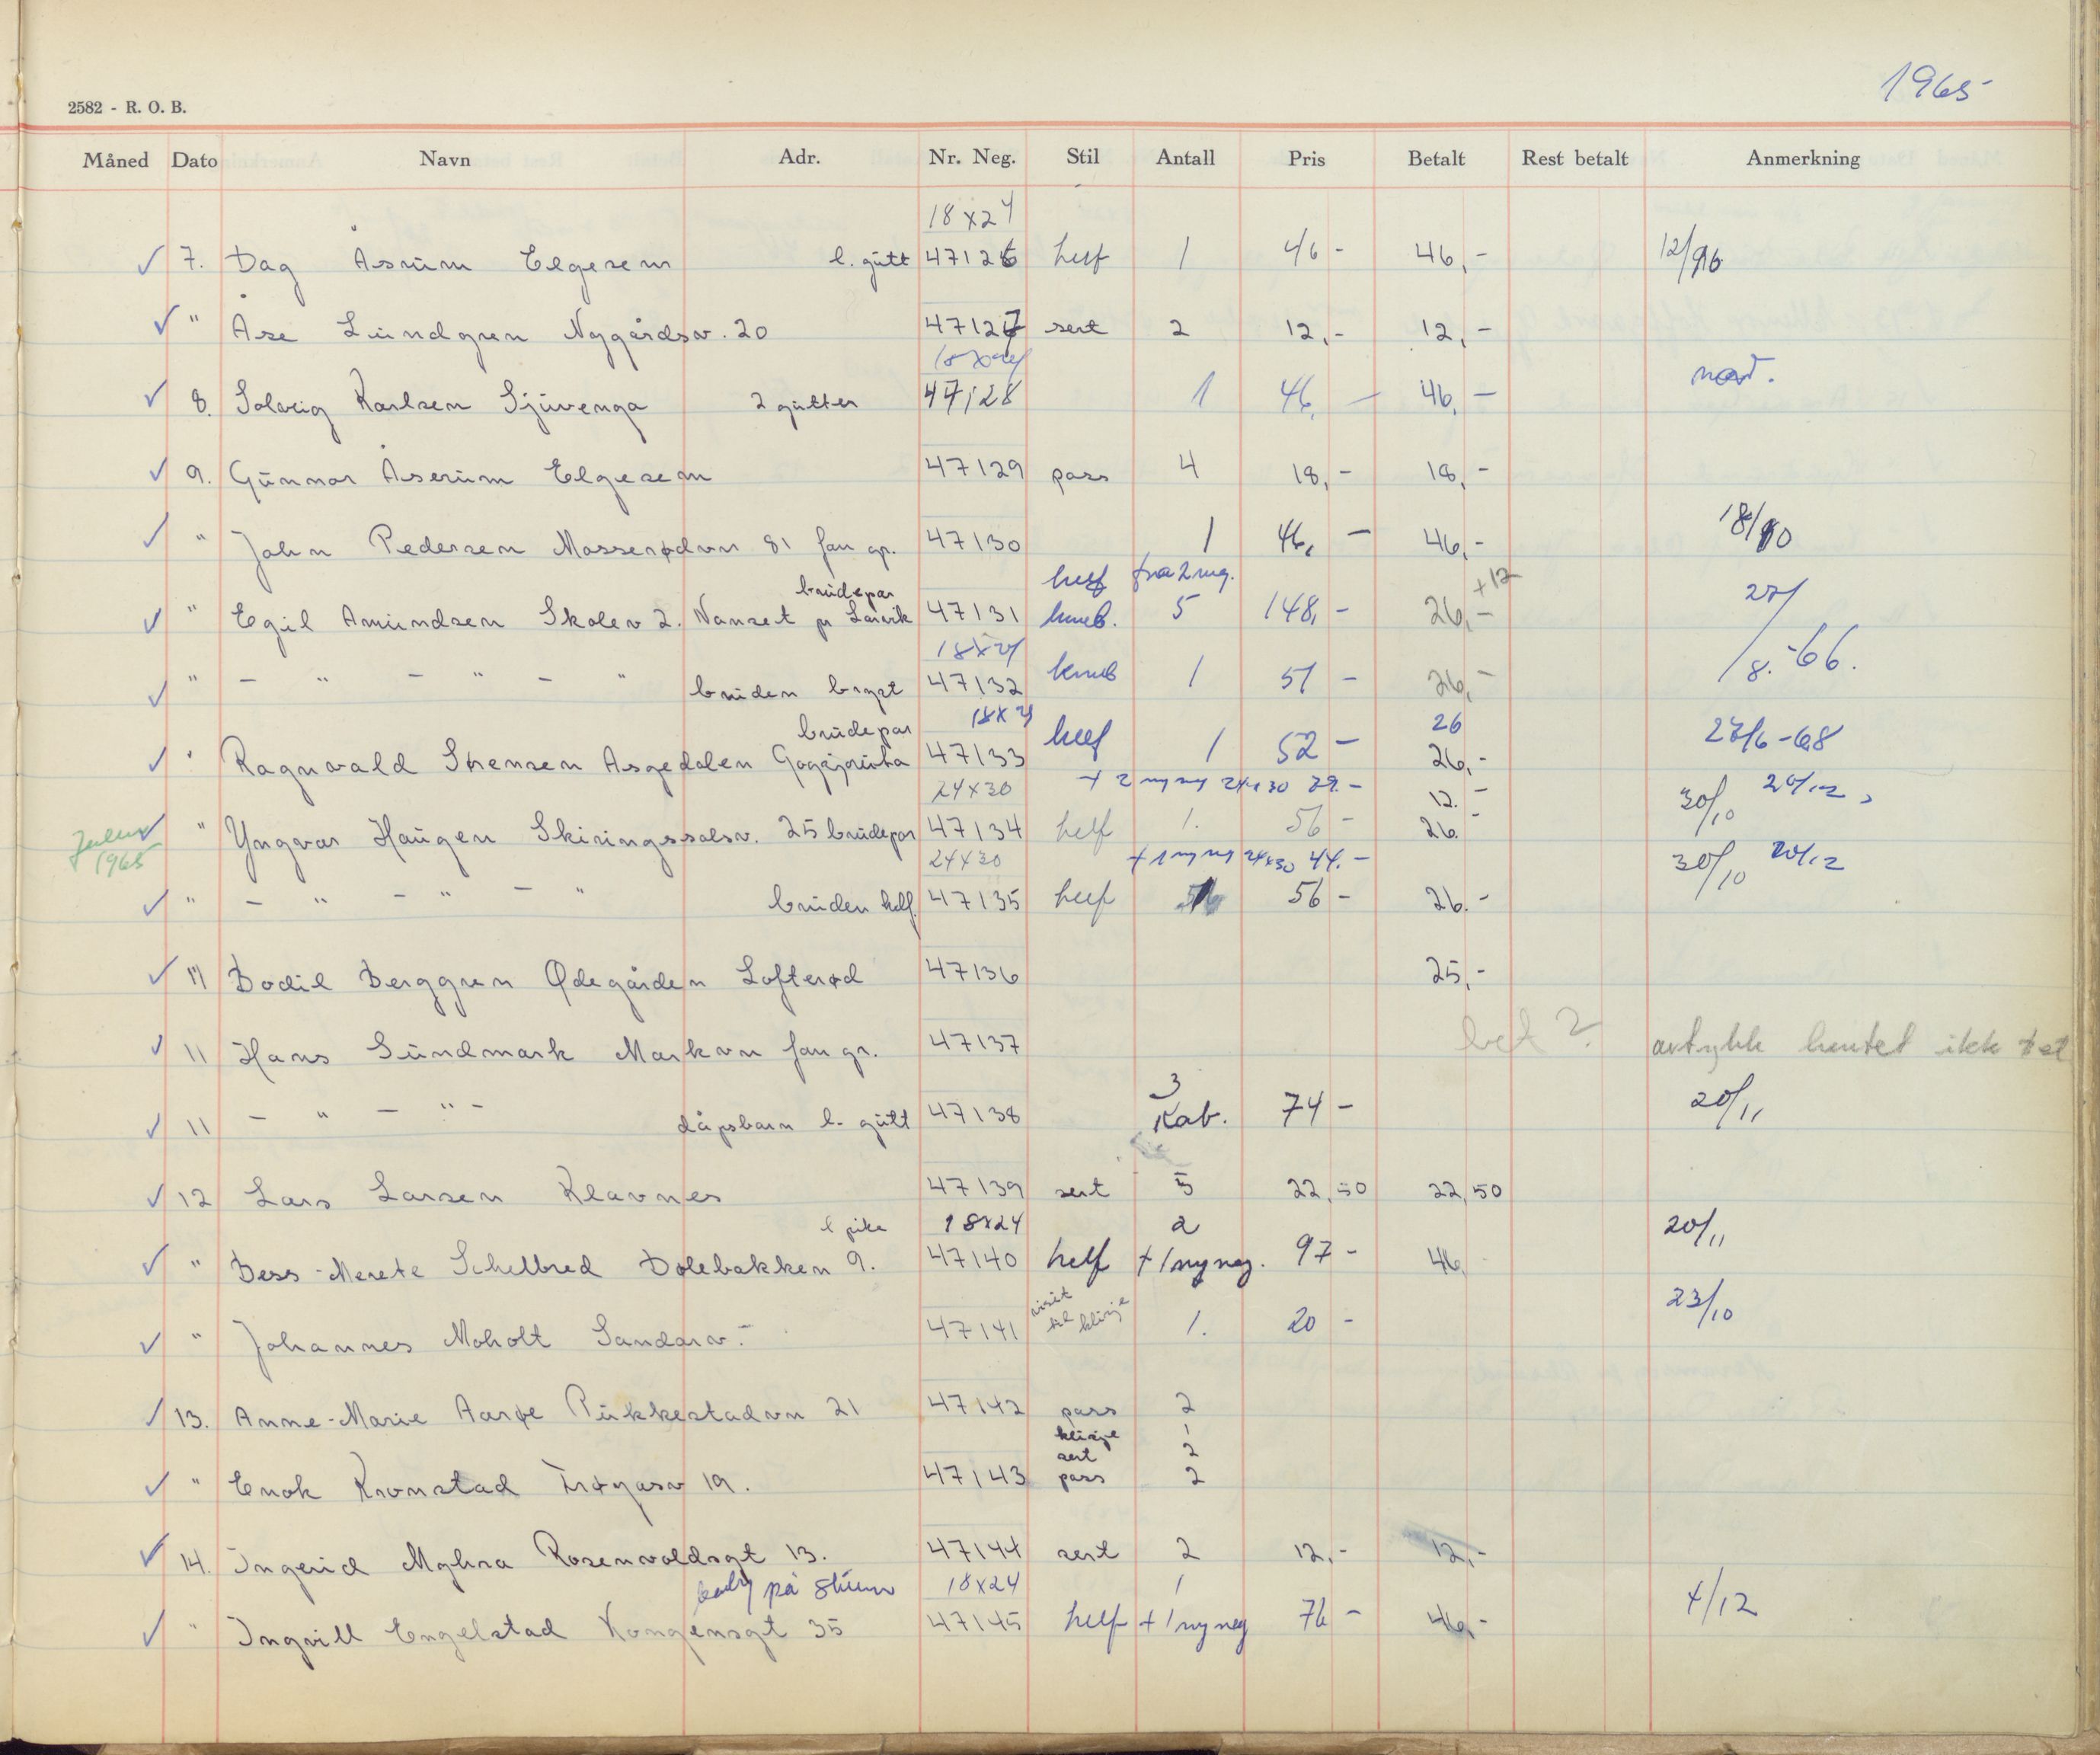 1965
2582 - R. O. B.
Måned Dato Navn Adr. Nr. Neg. Stil Antall Pris Betalt Rest betalt Anmerkning
18x24
✓ 7. Dag Åsrum Elgesem l. gutt 47126 helf 1 46 - 46,-
✓ " Åse Lundgren Nygårdsv. 20 47127 sert 2 12,- 12,-
18x24
✓ 8. Solveig Karlsen Sjuvenga 2 gutter 47128 1 46, - 46, -
✓ 9. Gunnar Åserum Elgesem 47129 pass 4 18,- 18,-
✓ " John Pedersen Masserødvn 81 fam gr. 47130 1 46, - 46,- 18/10
helf fra 2 neg.
brudepar +12
✓ " Egil Amundsen Skolev 2. Nanset pr Larvik 47131 kneb. 5 148,- 26,- 27/8.-66.
18x24
✓ " - " - " - " bruden bryst 47132 kneb 1 51 - 26,-
brudepar 18x24 26
✓ " Ragnvald Sørensen Asgedalen 47133 helf 1 52 - 26,- 27/6-68
24x30 + 2 ny neg 24x30 89.- 12.-
✓ " Yngvar Haugen Skiringssalsv. 25 brudepar 47134 helf 1. 56 - 26.- 30/10 20/12
Juleuts
1965
24x30 + 1 ny neg 24x30 44.-
✓ " - " - " - " bruden helf. 47135 helf 1 56 - 26.- 30/10 20/12
✓ 11 Bodil Berggren Ødegården Løfterød 47136 25,-
✓ 11 Hans Sundmark Markvn fam gr. 47137 bet? avtrykk hentet ikke bet
3
✓ 11 - " - " - dåpsbarn l. gutt 47138 Kab. 74 - 20/11
✓ 12 Lars Larsen Klavnes 47139 sert 5 22,50 22,50
l pike 18x24 2
✓ " Bess-Merete Schelbred Dølebakken 9. 47140 helf + 1 ny neg. 97 - 46, 20/11
visit
✓ " Johannes Moholt Sandarv.- 47141 til klisje 1. 20 - 23/10
✓ 13. Anne-Marie Aarøe Pukkestadvn 21 47142 pass 2
klisje 1
sert 2
✓ " Enok Kronstad Frøyasv 19. 47143 pass 2
✓ 14. Ingerid Myhra Rosenvoldsgt 13. 47144 sert 2 12,- 12,-
baby på 18x24 1
✓ " Ingvill Engelstad Kongensgt 35 47145 helf + 1 ny neg 76 - 46,- 4/12